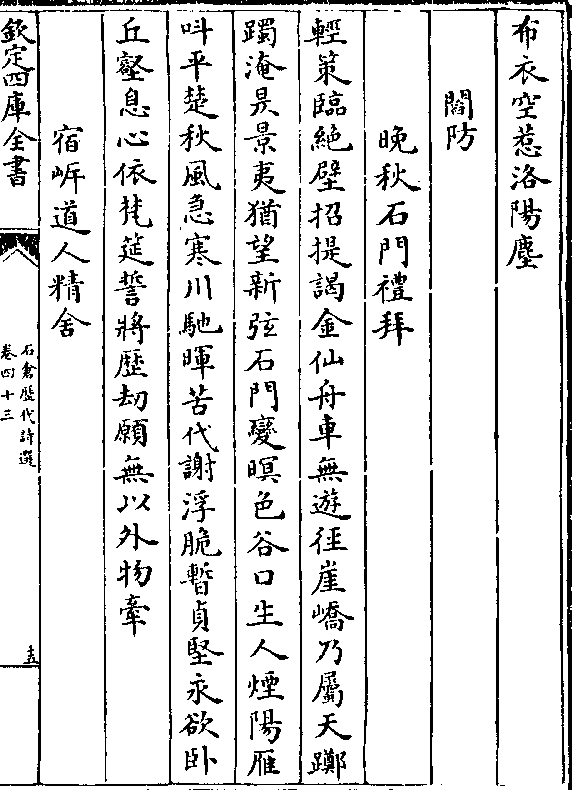 布衣空惹洛陽塵
閻防
晚秋石門禮拜
輕策臨絶壁招提謁金仙舟車無遊徑崖嶠乃屬天躑
躅淹昃景夷猶望新弦石門變暝色谷口生人煙陽雁
呌平楚秋風急寒川馳暉苦代謝浮脆暫貞堅永欲卧
丘壑息心依梵筵誓將歷劫願無以外物牽
宿岓道人精舍
欽定四庫全書
石倉歴代詩選
卷四十三
十五